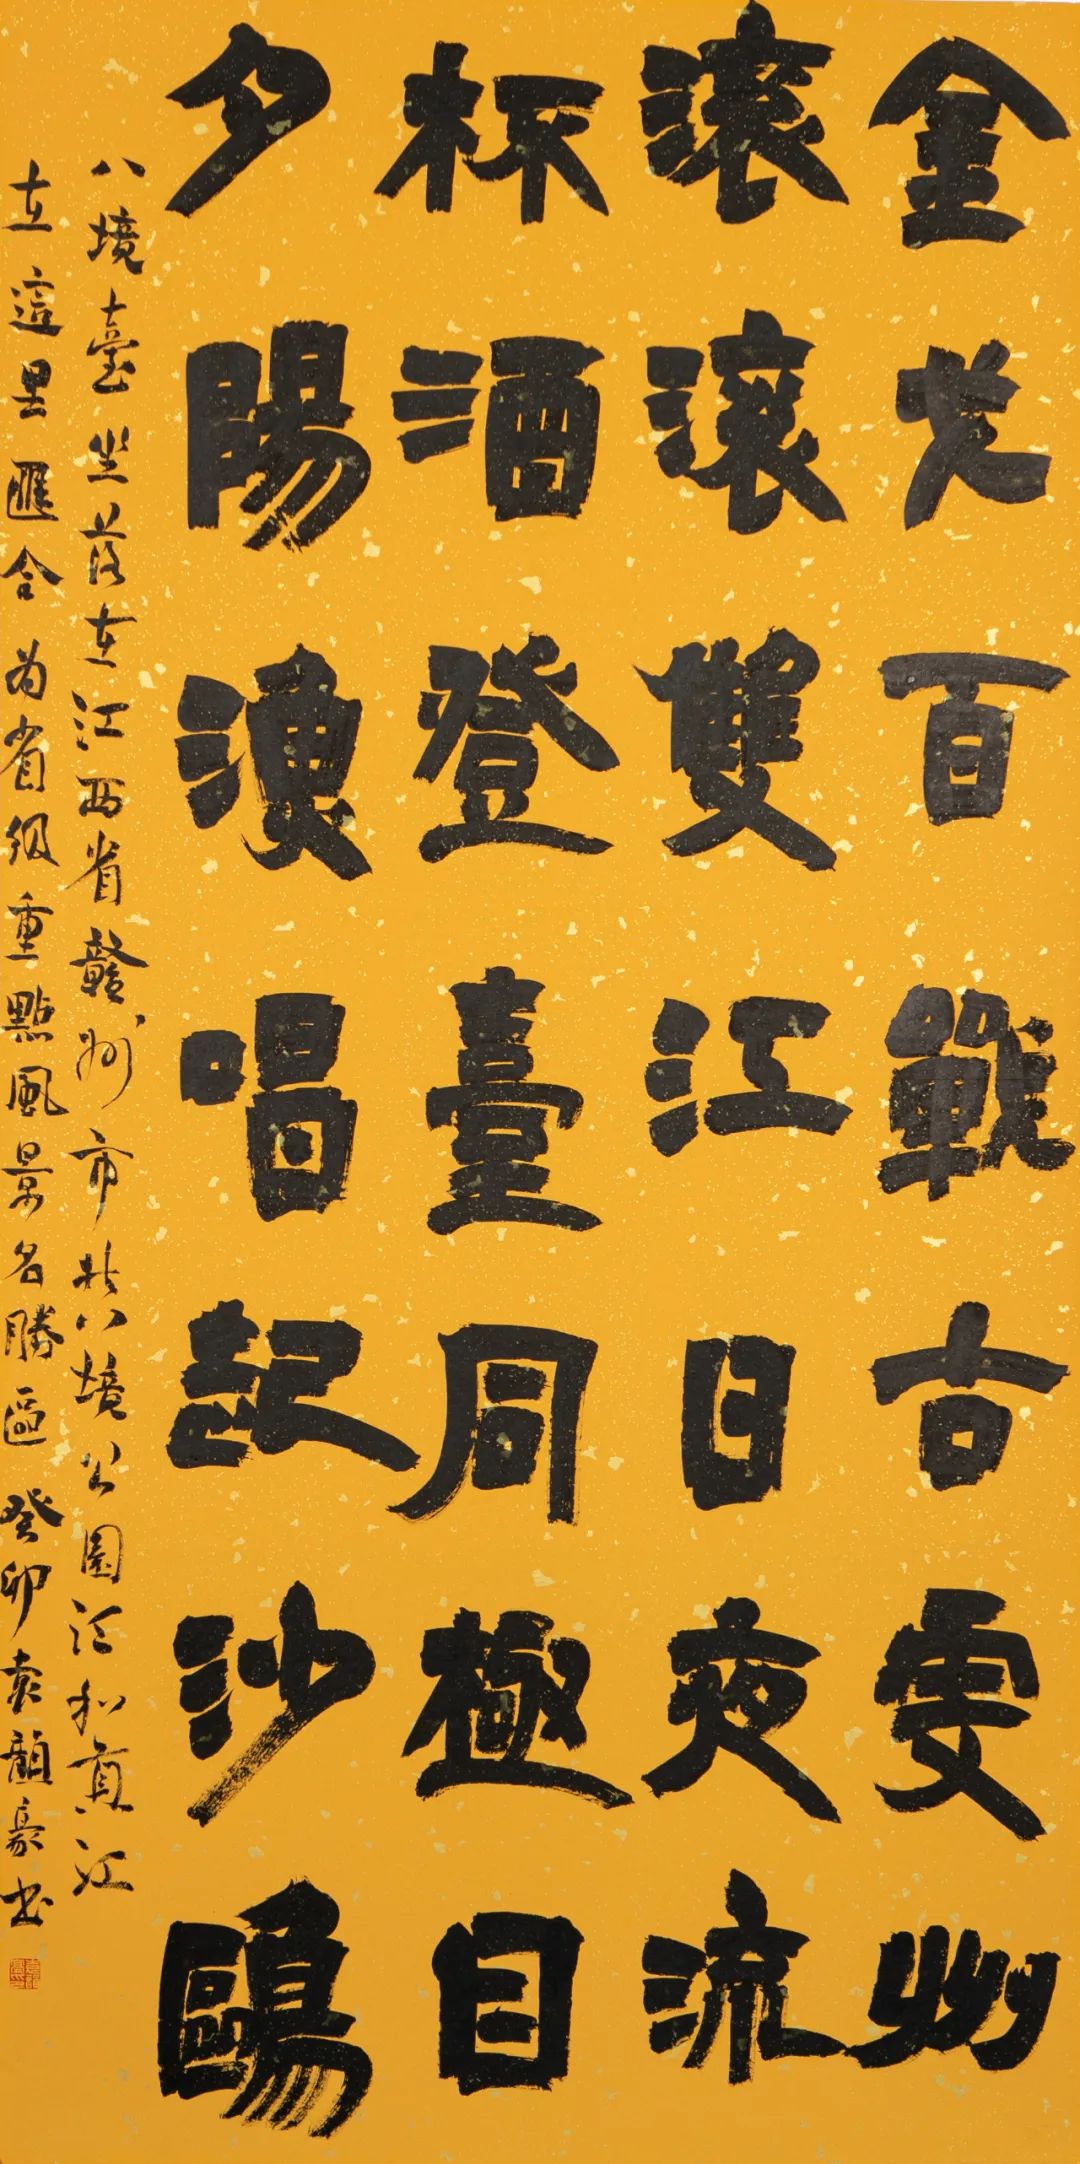 金戈百戰古虔州
滾滾雙江日夜流
杯酒登臺同極目
夕陽漁唱起沙鷗
八境臺坐落在江西省贛州市北八境公園江和貢江
在這里匯合为省級重點風景名勝區癸卯袁豪书